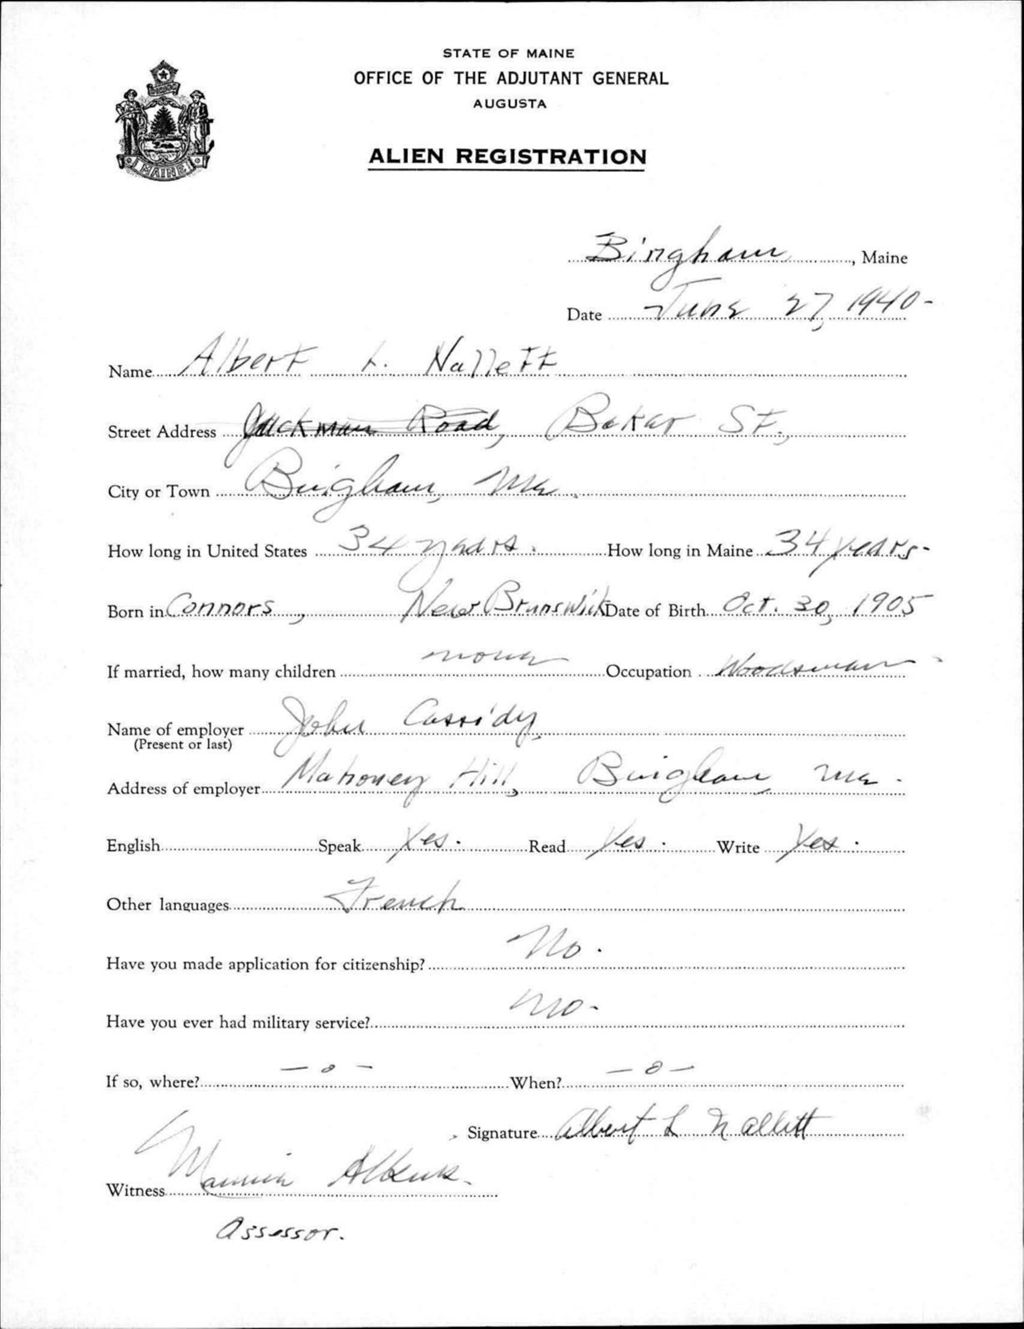 STATE OF MAINE
OFFICE OF THE ADJUTANT GENERAL
AUGUSTA
ALIEN REGISTRATION
MAINE
Bingham, Maine
Date June 27, 1940-
Name Albert L. Nallett
Street Address Jackman Road, Baker St.,
City or Town Bingham, Me.
How long in United States 34 years. How long in Maine 34 years-
Born in Connors, New Brunswick Date of Birth Oct. 30, 1905
If married, how many children none Occupation Woodsman
Name of employer John Cassidy
(Present or last)
Address of employer Mahoney Hill, Bingham, Me.
English Speak Yes. Read Yes. Write Yes.
Other languages French
Have you made application for citizenship? No.
Have you ever had military service? No-
If so, where? -o- When? -o-
Signature Albert L Nallett
Witness
Assessor.